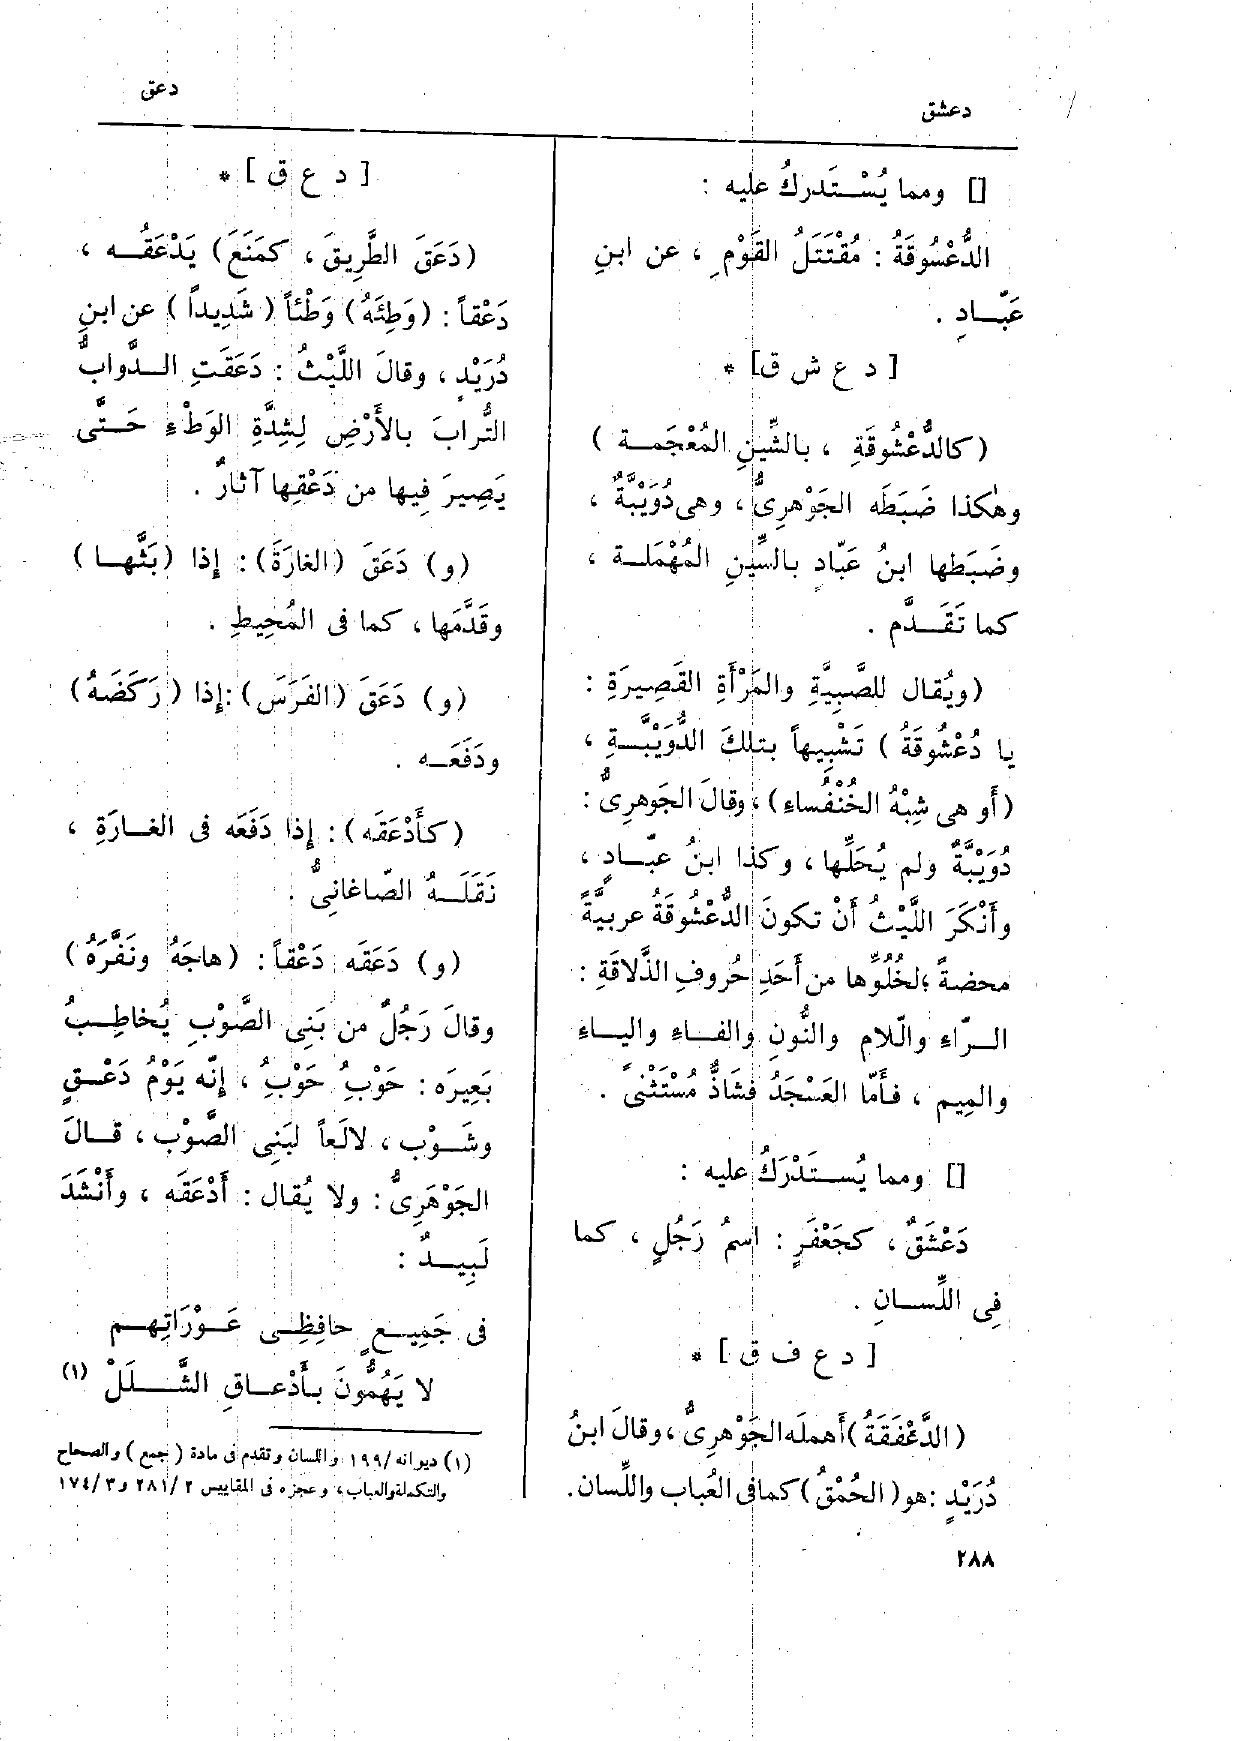 دعشق
دعق
[] ومما يُسْـتَدركُ عليه :
الدُّعْسُوقَةُ : مُقْتَتَلُ القَوْمِ ، عن ابنِ
عَبَّـادٍ .
[ د ع ش ق] *
(كالدُّعْشُوقَةِ ، بالشِّينِ المُعْجَمـة )
وهٰكذا ضَبَطَه الجَوْهرِىُّ ، وهى دُوَيْبَّةٌ ،
وضَبَطها ابنُ عَبّاد بالسِّينِ المُهْمَلـة ،
كما تَقَـدَّم .
(ويُقال للصبِيَّةِ والمَرْأَةِ القَصِيرَةِ :
يا دُعْشُوقَةُ ) تَشْبِيهاً بتلكَ الدُّوَيْبَّـةِ ،
(أو هى شِبْهُ الخُنْفُساء) ، وقالَ الجَوهرِىُّ :
دُوَيْبَّةٌ ولم يُحَلِّها ، وكذا ابنُ عبّـادٍ ،
وأَنْكَرَ اللَّيْثُ أَنْ تكونَ الدُّعْشُوقَةُ عربيَّةً
محضةً ؛لخُلُوِّها من أَحَدِ حُروفِ الذَّلاقَةِ :
الـرّاء والّلام والنُّونِ والفـاء واليـاء
والميم ، فـأَمّا العَسْجَدُ فشاذٌّ مُسْتَثْنىً .
[] ومما يُسـتَدْرَكُ عليه :
دَعْشَقٌ ، كجَعْفَرٍ : اسمُ رَجُلٍ ، كما
فِى اللِّسـانِ .
[ د ع ف ق ] *
(الدَّعْفَقَةُ)أَهملَه الجَوْهرِىُّ ، وقالَ ابنُ
دُرَيْدٍ :هو( الحُمْقُ)كما فى العُباب واللِّسان.
[ د ع ق ] *
(دَعَقَ الطَّرِيقَ ، كمَنَعَ) يَدْعَقُـه ،
دَعْقاً : (وَطِئَهُ) وَطْئاً ( شَدِيداً ) عن ابنِ
دُرَيْدٍ ، وقالَ اللَّيْثُ : دَعَقَتِ الـدَّوابُّ
التُّرابَ بالأَرْضِ لِشِدَّةِ الوَطْء حَـتَّى
يَصِيرَ فِيها من دَعْقِها آثارٌ .
(و) دَعَقَ (الغارَةَ) : إذا (بَثَّهـا )
وقَدَّمَها ، كما فى المُحِيطِ .
(و) دَعَقَ (الفَرَسَ) :إذا ( رَكَضَهُ)
ودَفَعَـه .
(كـأَدْعَقَه) : إذا دَفَعَه فى الغـارَةِ ،
نَقَلَـهُ الصّاغانِىُّ .
(و) دَعَقَه دَعْقاً : (هاجَهُ ونَفَّرَهُ)
وقالَ رَجُلٌ من بَنِى الصَّوْبِ يُخاطِـبُ
بَعِيرَه : حَوْبُ حَوْبُ ، إنَّه يَوْمُ دَعْـقٍ
وشَـوْب ، لالَعاً لبَنِى الصَّوْب ، قـالَ
الجَوْهَرِىُّ : ولا يُقال : أَدْعَقَه ، وأَنْشَدَ
لَبِيـدٌ :
فى جَمِيـعٍ حافِظِـى عَـوْرَاتِهـم
لا يَهُمُّونَ بـأَدْعـاقِ الشَّـلَلْ (١)
(١) ديوانه/١٩٩ واللسان وتقدم فى مادة ( جمع ) والصحاح
والتكملة والعباب ، وعجزه فى المقاييس ٢/ ٢٨١ و٣/ ١٧٤
٢٨٨